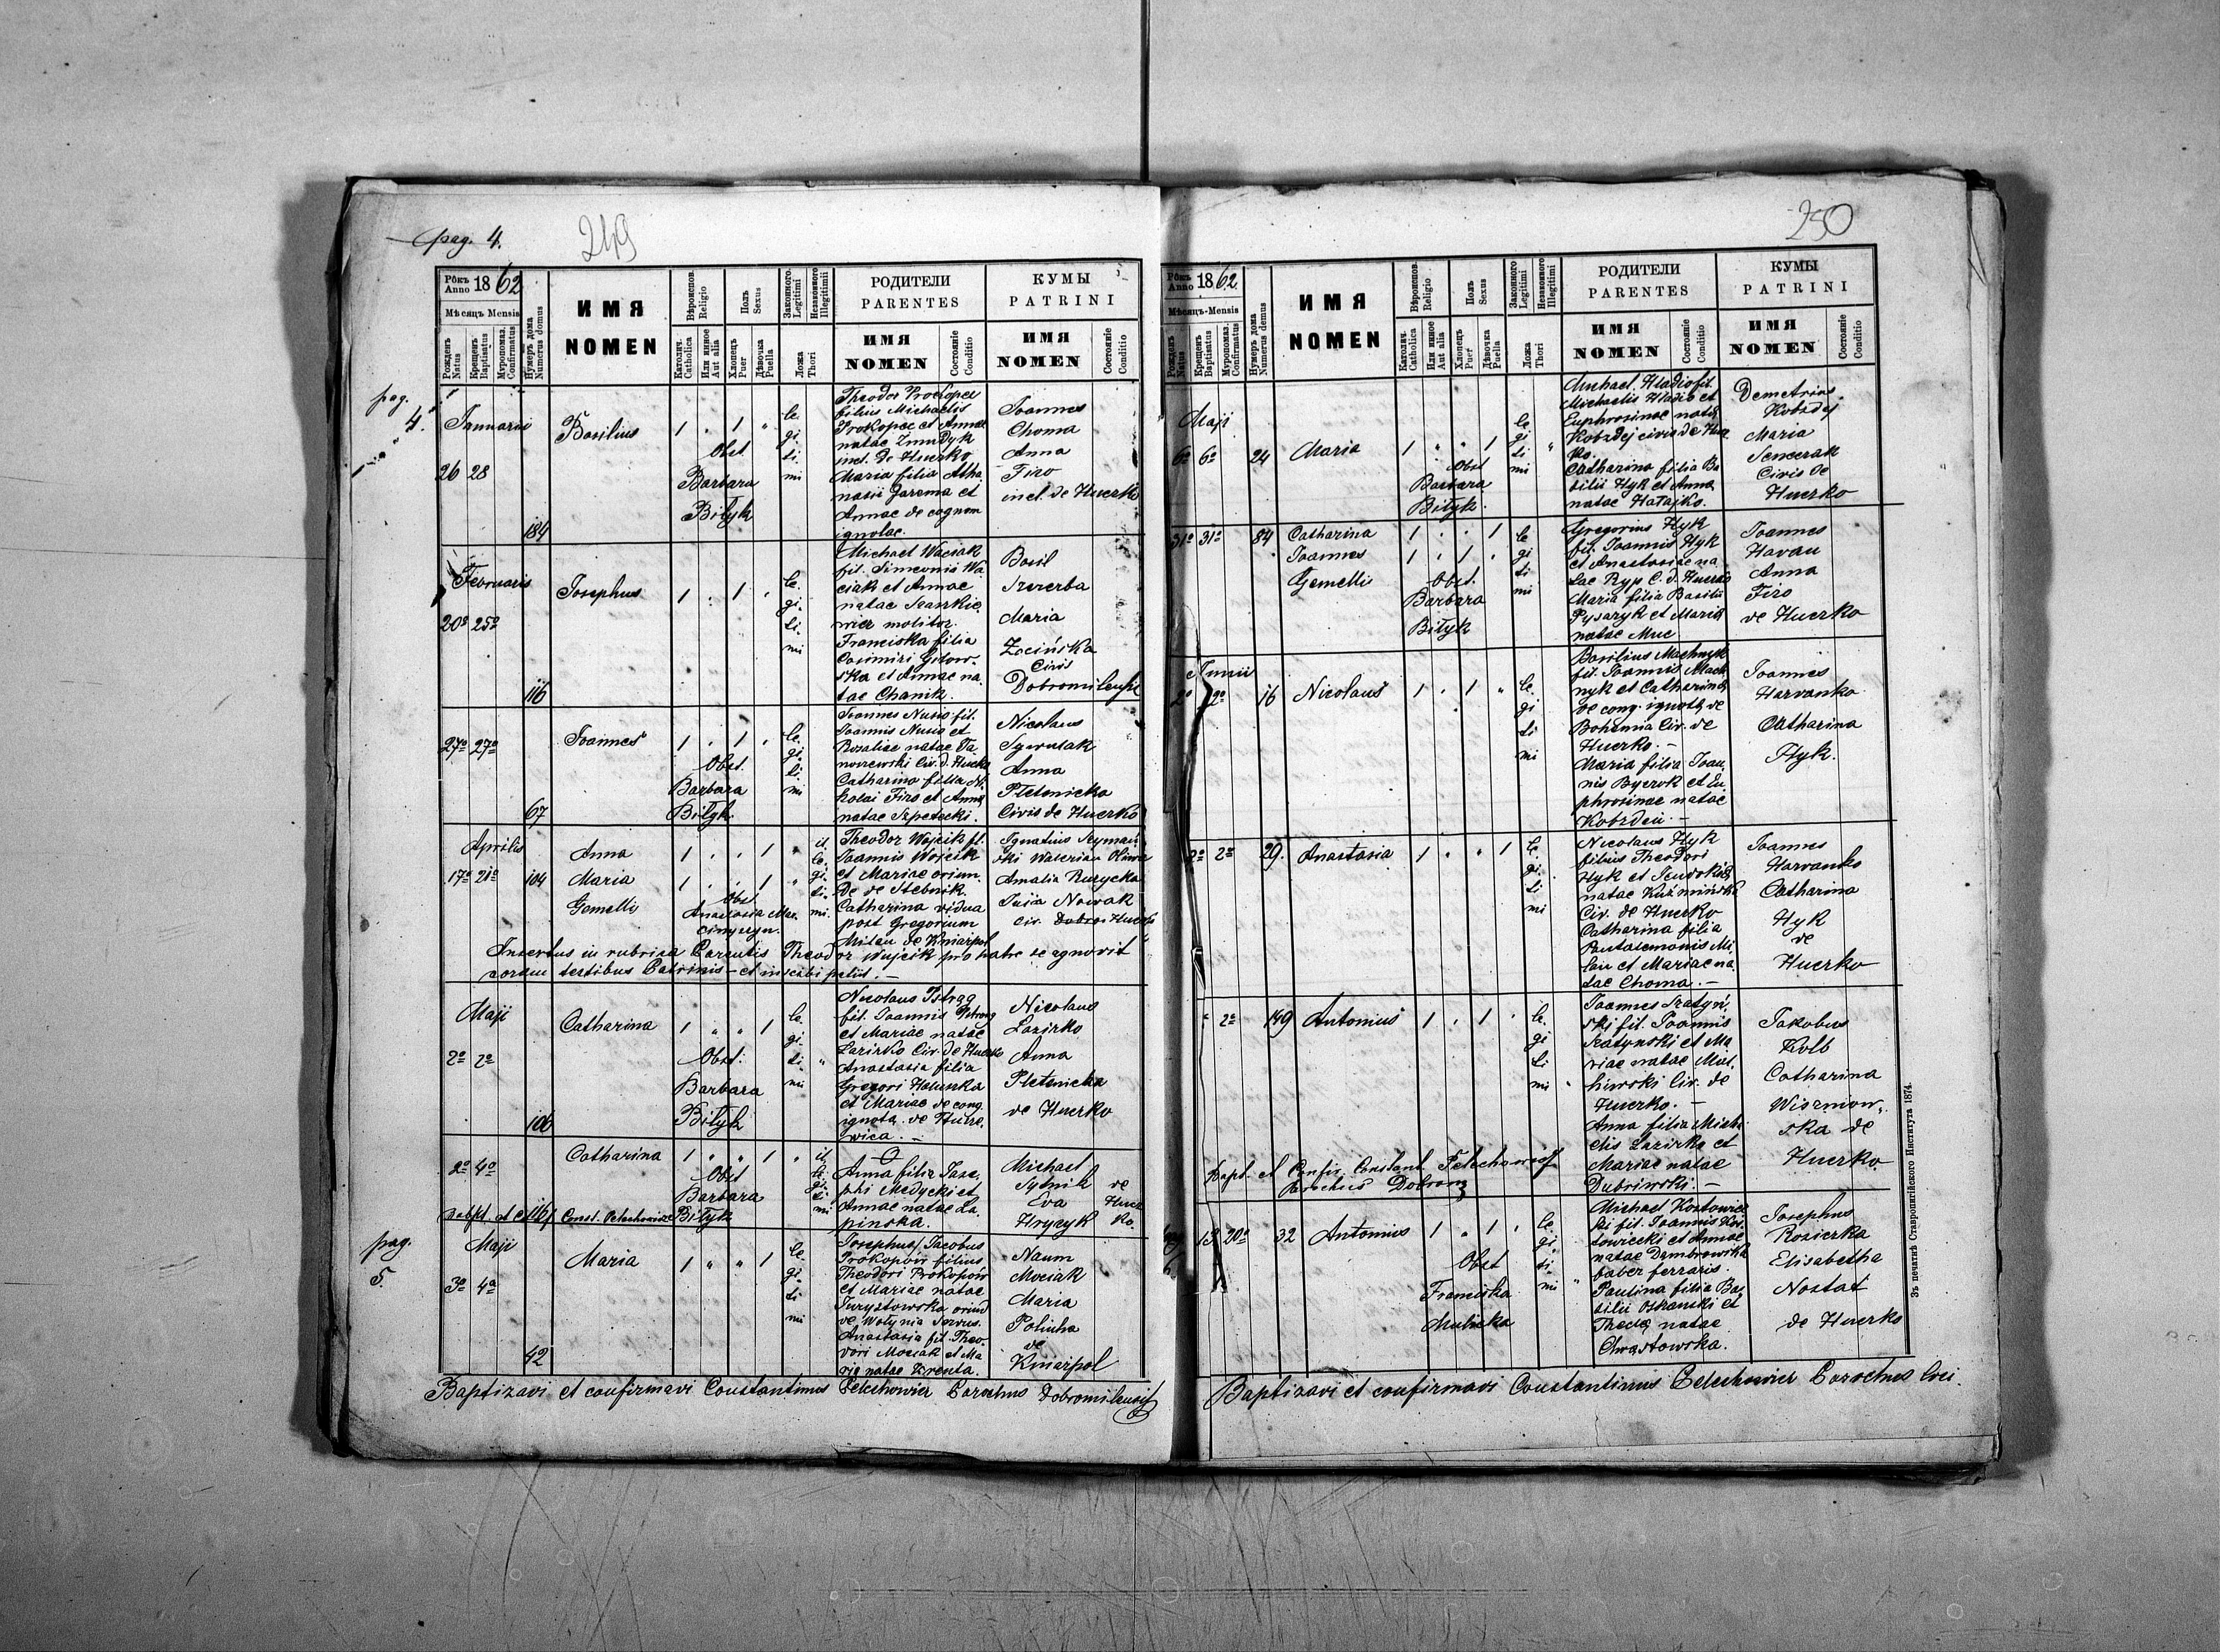 pag. 4.
249
Рôкъ Anno 1862
Мѣсяцъ Mensis
Рожденъ Natus
Крещенъ Baptisatus
Муропомаз. Confirmatus
Нумеръ дома Numerus domus
ИМЯ
NOMEN
Вѣроисповѣд. Religio
Католич. Catholica
Или инное Aut alia
Полъ Sexus
Хлопецъ Puer
Дѣвочка Puella
Законного Legitimi
Незаконного Illegitimi
Ложа Thori
РОДИТЕЛИ
PARENTES
ИМЯ
NOMEN
Состоянiе Conditio
КУМЫ
PATRINI
ИМЯ
NOMEN
Состоянiе Conditio
pag.
4.
Januarii
26 28
184
Basilius
1 . 1 "
Obst.
Barbara
Bityk
le.
gi.
ti.
mi
Theodor Prokopec
filius Michaelis
Prokopec et Annae
natae Zmudyk
incl. de Huczko
Maria filia Atha
nasii Jarema et
Annae de cognom
ignotae.
Joannes
Choma
Anna
Firo
incl. de Huczko
Februaris
20º 25º
116
Josephus
1 . 1 .
le.
gi.
ti.
mi
Michael Waciak
fil. Simeonis Wa
ciak et Annae
natae
molitor.
Franciska filia
Casimiri
ska et Annae na
tae Chanik.
Basil
Szczerba
Maria
Zocińska
Civis
Dobromilensis
27º 27º
67
Joannes
1 . 1 .
Obst.
Barbara
Bityk
le.
gi
ti.
mi
Joannes Nusio fil.
Joannis Nusio et
Rosaliae natae Ja
noszewski Civ. d. Huczko
Catharina filia Ni
kolai Firo et Annae
natae Szpetecki.
Nicolaus
Sywulak
Anna
Pletenicka
Civis de Huczko
Aprilis
17º 21º 104
Anna
Maria
Gemelli
1 . . 1
1 . . 1
Obst.
Anastasia
il
le.
gi.
ti.
mi.
Theodor Wojcik fil.
Joannis Wojcik
et Mariae oriun.
de de Stebnik.
Catharina vidua
post Gregorium
Milan de Kniazpol
Ignatius Szymań
ski Waleria Oliwa
Amalia Ruzycka
Julia Nowak
civ. Huczko
Insertus in rubrica Parentis Theodor Wujcik pro patre se agnovit
coram testibus Patrinis – et inscribi petiit. –
Maji
2º 2º
106
Catharina
1 " " 1
Obst.
Barbara
Bityk
le.
gi.
ti.
mi
Nicolaus Pstrąg
fil. Joannis Pstrong
et Mariae natae
Lazirko Civ. de Huczko
Anastasia filia
Gregori Haluszka
et Mariae de cong.
ignota de Husse.
wica. –
Nicolaus
Lazirko
Anna
Pletenicka
de Huczko
2º 4º
Catharina
1 " " 1
Obst
Barbara
Bityk
il
le.
gi.
ti.
mi
Anna filia Jose.
phi Medycki et
Annae natae La
pinska.
Michael
Sytnik de
Eva Hucz
Hryzyk ko.
pag.
5.
Maji
3º 4º
42
Maria
1 " " 1
le.
gi.
ti.
mi
Josephus/Jacobus
Prokopów filius
Theodori Prokopów
et Mariae natae
Juryztowska oriund
de Wolynia servus.
Anastasia fil. Theo
dori Mociak et Ma
riae natae Krenta.
Naum
Mociak
Maria
Poticha
de
Kniazpol
Baptizavi et confirmavi Constantinus Pelechowicz Parochus Dobromilensis
250
Рôкъ Anno 1862
Мѣсяцъ-Mensis
Рожденъ Natus
Крещенъ Baptisatus
Муропомаз. Confirmatus
Нумеръ дома Numerus domus
ИМЯ
NOMEN
Вѣроисповѣд. Religio
Католич. Catholica
Или инное Aut alia
Полъ Sexus
Хлопецъ Puer
Дѣвочка Puella
Законного Legitimi
Незаконного Illegitimi
Ложа Thori
РОДИТЕЛИ
PARENTES
ИМЯ
NOMEN
Состоянiе Conditio
КУМЫ
PATRINI
ИМЯ
NOMEN
Состоянiе Conditio
Maji
6º 6º 24
Maria
1 " " 1
Obst
Barbara
Bityk.
le
gi
ti
mi
Michael Hladio fil.
Michaelis Hladio et
Euphrosinae natae
Kobzdej civis de Hucz
ko.
Catharina filia Ba
silii Hyk et Annae
natae Hatajko.
Demetrius
Kobzdej
Maria
Senczak
Civis de
Huczko
31º 31º 84
Catharina
Joannes
Gemelli
1 . . 1
1 . 1 .
Obst.
Barbara
Bityk
le
gi
ti
mi
Gregorius Hyk
fil. Joannis Hyk
et Anastasiae na
tae Ryp C. d. Huczko
Maria filia Basilii
Pysaryk et Mariae
natae Muc
Joannes
Havan
Anna
Firo
de Huczko
Junii
2º 2º 16
Nicolaus
1 . 1 "
le.
gi
ti
mi
Basilius Machnyk
fil. Joannis Mach
nyk et Catharinae
de cong. ignota de
Bohemia Civ. de
Huczko. –
Maria filia Joan,
nis Byczok et Eu
phrosinae natae
Kobzdei. –
Joannes
Harvanko
Catharina
Hyk.
2º 2º 29.
Anastasia
1 . . 1
le.
gi.
ti
mi
Nicolaus Hyk
filius Theodori
Hyk et Eeudokiae
natae Kuźmińska
Civ. de Huczko
Catharina filia
Pantalemonis Mi
lan et Mariae na
tae Choma. –
Joannes
Harvanko
Catharina
Hyk
de
Huczko
2º 149
Antonius
1 . 1 .
le.
gi
ti
mi
Joannes Szatyń,
ski fil. Joannis
Szatynski et Ma
riae natae
Civ. de
Huczko. –
Anna filia Micha
elis Lazirko et
Mariae natae
Dubriwski. –
Jakobus
Kolb
Catharina
Wiszniow,
ska de
Huczko
Bapt. et Confir. Constant. Pelechowicz
Parochus Dobrom
13 20º 32
Antonius
1 " 1 .
Obst
Franciska
Mulicka
le.
gi
ti.
mi
Michael Kostowiec
ki fil. Joannis Kos
towiecki et Annae
natae Dembrowska
faber ferraris.
Paulina filia Ba,
silii Oskanski et
Theclae natae
Chwastowska.
Josephus
Rozieczka
Elisabetha
Nostat
de Huczko
Baptizavi et confirmavi Constantinus Pelechowicz Parochus loci.
Зъ печатнѣ Ставропигiйского Института 1874.